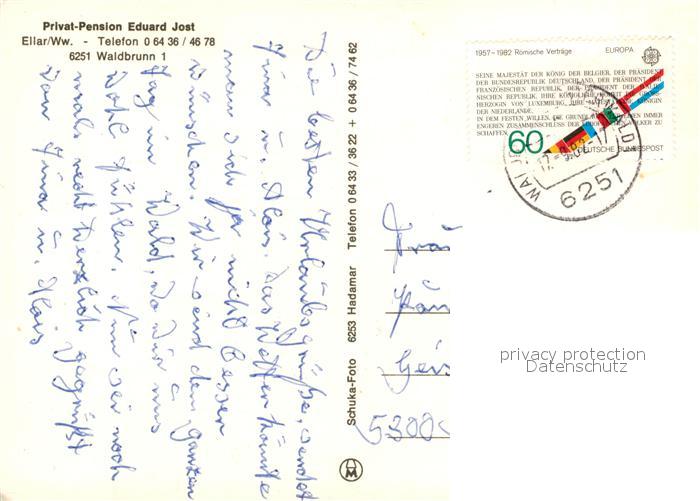 Privat-Pension Eduard Jost
Ellar/Ww. - Telefon 0 64 36 / 46 78
6251 Waldbrunn 1
Die besten Urlaubsgrüße, sendet
Irma u. Alois. Das Wetter könnte
man sich ja nicht besser
wünschen. Wir sind den ganzen
Tag im Wald, wo wir uns
wohl fühlen. Nun sei noch
mals recht herzlich gegrüßt
von Irma u. Alois
Schuka-Foto 6253 Hadamar Telefon 0 64 33 / 36 22 + 0 64 36 / 74 62
1957-1982 Römische Verträge EUROPA
SEINE MAJESTÄT DER KÖNIG DER BELGIER, DER PRÄSIDENT
DER BUNDESREPUBLIK DEUTSCHLAND, DER PRÄSIDENT DER
FRANZÖSISCHEN REPUBLIK, DER PRÄSIDENT DER ITALIE-
NISCHEN REPUBLIK, IHRE KÖNIGLICHE HOHEIT DIE GROSS-
HERZOGIN VON LUXEMBURG, IHRE MAJESTÄT DIE KÖNIGIN
DER NIEDERLANDE
IN DEM FESTEN WILLEN, DIE GRUNDLAGEN EINES IMMER
ENGEREN ZUSAMMENSCHLUSSES DER EUROPÄISCHEN VÖLKER ZU
SCHAFFEN
60
DEUTSCHE BUNDESPOST
6251
Frau
5300
privacy protection
Datenschutz